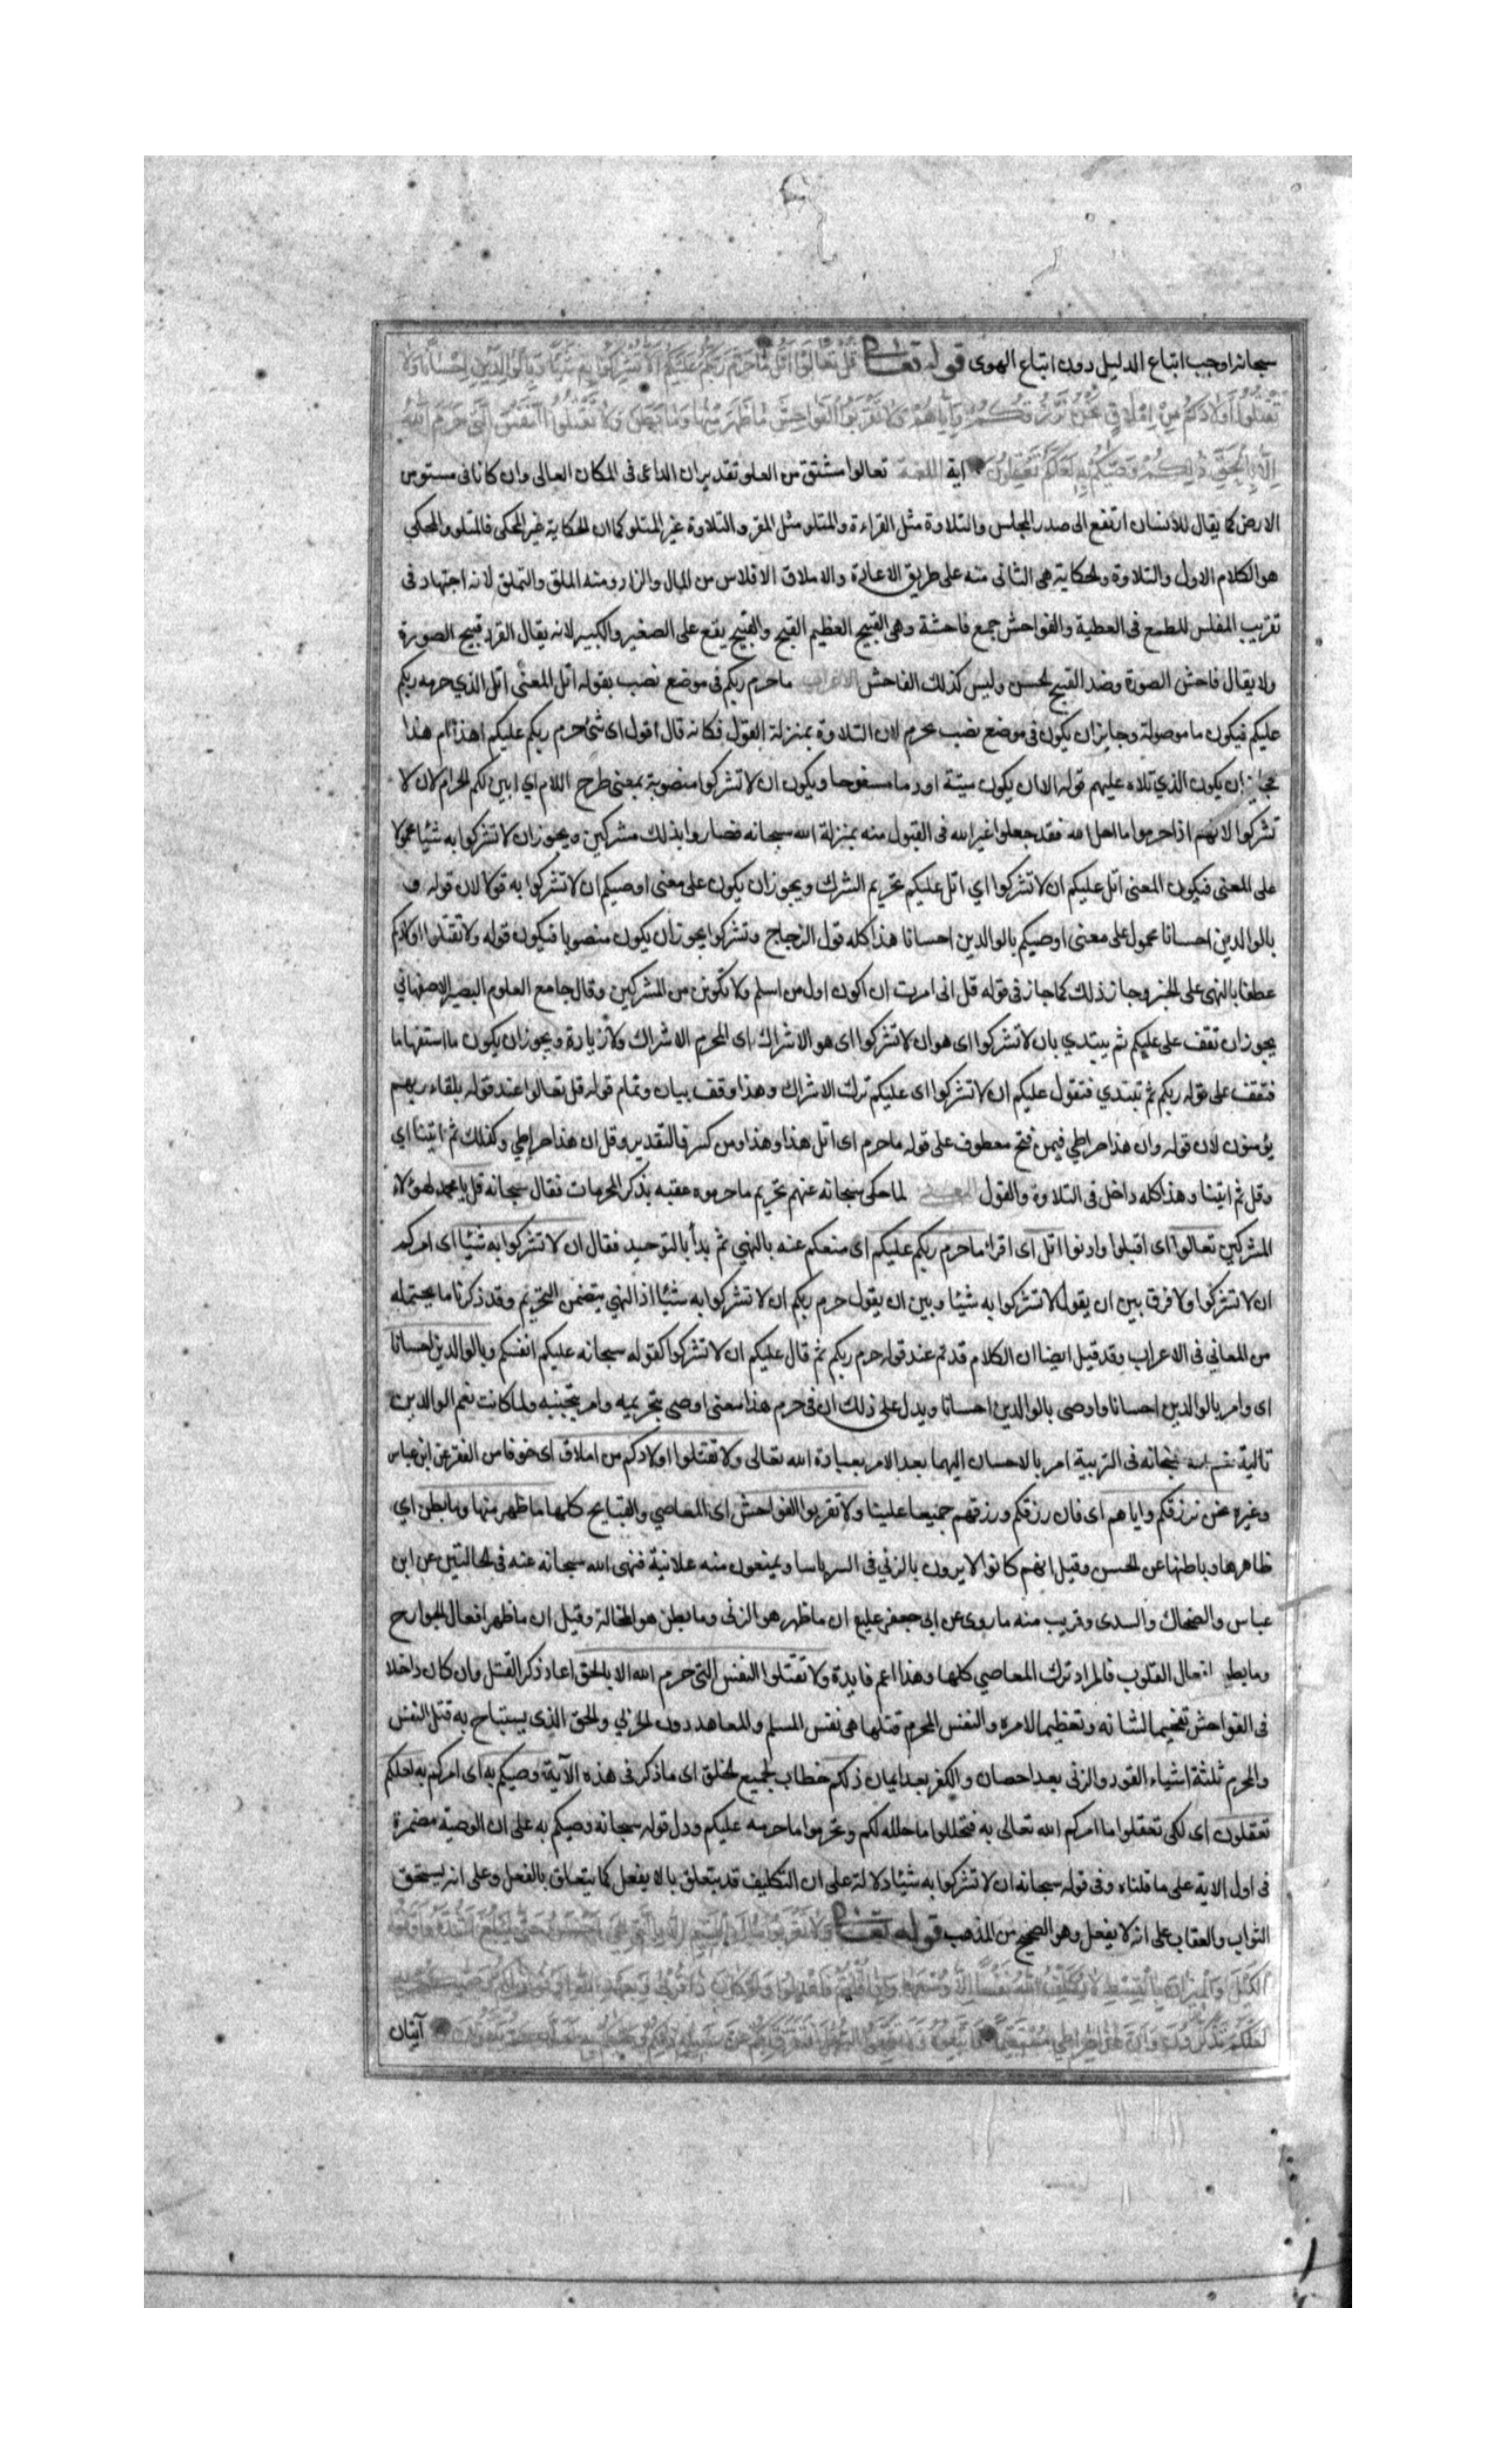 سبحانه اوجب اتباع الدليل دون اتباع الهوى قوله تعالى قل تعالوا اتل ما حرم ربكم عليكم الا تشركوا به شيئا وبالوالدين احسانا ولا
تقتلوا اولادكم من املاق نحن نرزقكم واياهم ولا تقربوا الفواحش ما ظهر منها وما بطن ولا تقتلوا النفس التى حرم الله
الا بالحق ذلكم وصيكم به لعلكم تعقلون اية اللغة تعالوا مشتق من العلو تقديران الداعى فى المكان العالى وان كانا فى مستو من
الارض كما يقال للانسان ارتفع الى صدر المجلس والتلاوة مثل القراءة والمتلو مثل المقرو التلاوة غير المتلو كما ان الحكاية غير المحكى فالمتلو والمحكي
هو الكلام الاول والتلاوة والحكاية هى الثانى منه على طريق الاعادة والاملاق الافلاس من المال والزاد ومنه الملق والتملق لانه اجتهاد فى
تقريب المفلس للطمع فى العطية والفواحش جمع فاحشة وهى القبيح العظيم القبح والقبيح يقع على الصغير والكبير لانه يقال القرد قبيح الصورة
ولا يقال فاحش الصورة وضد القبيح الحسن وليس كذلك الفاحش الاعراب ما حرم ربكم فى موضع نصب بقوله اتل المعنى اتل الذي حرمه ربكم
عليكم فيكون ما موصولة وجايز ان يكون فى موضع نصب بحرم لان التلاوة بمنزلة القول فكانه قال اقول اى شئ حرم ربكم عليكم اهذا ام هذا
فجايز ان يكون الذي تلاه عليهم قوله الا ان يكون ميتة او دما مسفوحا ويكون ان لا تشركوا منصوبة بمعنى طرح اللام اي ابين لكم الحرام لان لا
تشركوا لانهم اذا حرموا ما احل الله فقد جعلوا غير الله فى القبول منه بمنزلة الله سبحانه فصاروا بذلك مشركين ويجوز ان لا تشركوا به شيئا محمولا
على المعنى فيكون المعنى اتل عليكم ان لا تشركوا اي اتل عليكم تحريم الشرك ويجوز ان يكون على معنى اوصيكم ان لا تشركوا به قولا لان قوله و
بالوالدين احسانا محمول على معنى اوصيكم بالوالدين احسانا هذا كله قول الزجاج وتشركوا يجوز ان يكون منصوبا فيكون قوله ولا تقتلوا اولادكم
عطفا بالنهى على الخبر وجاز ذلك كما جاز فى قوله قل انى امرت ان اكون اول من اسلم ولا تكونن من المشركين وقال جامع العلوم البصير الاصفهاني
يجوز ان تقف على عليكم ثم يبتدي بان لا تشركوا اى هو ان لا تشركوا اى هو الاشراك اى المحرم الاشراك ولا زيادة ويجوز ان يكون ما استفهاما
فتقف على قوله ربكم ثم تبتدي فتقول عليكم ان لا تشركوا اى عليكم ترك الاشراك وهذا وقف بيان وتمام قوله قل تعالوا عند قوله بلقاء ربهم
يؤمنون لان قوله وان هذا صراطي فيمن فتح معطوف على قوله ما حرم اى اتل هذا وهذا ومن كسر فالتقدير وقل ان هذا صراطي وكذلك ثم اتينا اي
وقل ثم اتينا وهذا كله داخل فى التلاوة والقول المعنى لما حكى سبحانه عنهم تحريم ما حرموه عقبه بذكر المحرمات فقال سبحانه قل يا محمد لهؤلاء
المشركين تعالوا اى اقبلوا وادنوا اتل اى اقرا ما حرم ربكم عليكم اى منعكم عنه بالنهي ثم بدأ بالتوحيد فقال ان لا تشركوا به شيئا اى امركم
ان لا تشركوا ولا فرق بين ان يقول لا تشركوا به شيئا وبين ان يقول حرم ربكم ان لا تشركوا به شيئا اذ النهي يتضمن التحريم وقد ذكرنا ما يحتمله
من المعاني فى الاعراب وقد قيل ايضا ان الكلام قد تم عند قوله حرم ربكم ثم قال عليكم ان لا تشركوا كقوله سبحانه عليكم انفسكم وبالوالدين احسانا
اى وامر بالوالدين احسانا واوصى بالوالدين احسانا ويدل على ذلك ان فى حرم هذا معنى اوصى بتحريمه وامر بتجنبه ولما كانت نعم الوالدين
تالية نعم الله سبحانه فى التربية امر بالاحسان اليهما بعد الامر بعبادة الله تعالى ولا تقتلوا اولادكم من املاق اى خوفا من الفقر عن ابن عباس
وغيره نحن نرزقكم واياهم اى فان رزقكم ورزقهم جميعا علينا ولا تقربوا الفواحش اى المعاصي والقبايح كلها ما ظهر منها وما بطن اي
ظاهرها وباطنها عن الحسن وقيل انهم كانوا لا يرون بالزنى فى السر باسا ويمنعون منه علانية فنهى الله سبحانه عنه فى الحالتين عن ابن
عباس والضحاك والسدى وقريب منه ما روى عن ابي جعفر عليع ان ما ظهر هو الزنى وما بطن هو المخالة وقيل ان ما ظهر افعال الجوارح
وما بطن افعال القلوب فالمراد ترك المعاصي كلها وهذا اعم فايدة ولا تقتلوا النفس التى حرم الله الا بالحق اعاد ذكر القتل وان كان داخلا
فى الفواحش تفخيما لشانه وتعظيما لامره والنفس المحرم قتلها هى نفس المسلم والمعاهد دون الحربي والحق الذى يستباح به قتل النفس
والمحرم ثلثة اشياء القود والزنى بعد احصان والكفر بعد ايمان ذلكم خطاب لجميع الخلق اى ما ذكر فى هذه الآية وصيكم به اى امركم به لعلكم
تعقلون اى لكى تعقلوا ما امركم الله تعالى به فتحللوا ما حلله لكم وتحرموا ما حرمه عليكم ودل قوله سبحانه وصيكم به على ان الوصية مضمرة
فى اول الاية على ما قلناه وفى قوله سبحانه ان لا تشركوا به شيئا دلالة على ان التكليف قد يتعلق بالا يفعل كما يتعلق بالفعل وعلى انه يستحق
الثواب والعقاب على انه لا يفعل وهو الصحيح من المذهب قوله تعالى ولا تقربوا مال اليتيم الا بالتى هى احسن حتى يبلغ اشده واوفوا
الكيل والميزان بالقسط لا نكلف نفسا الا وسعها واذا قلتم فاعدلوا ولو كان ذا قربى وبعهد الله اوفوا ذلكم وصيكم به
لعلكم تذكرون وان هذا صراطي مستقيما فاتبعوه ولا تتبعوا السبل فتفرق بكم عن سبيله ذلكم وصيكم به لعلكم تتقون آيتان